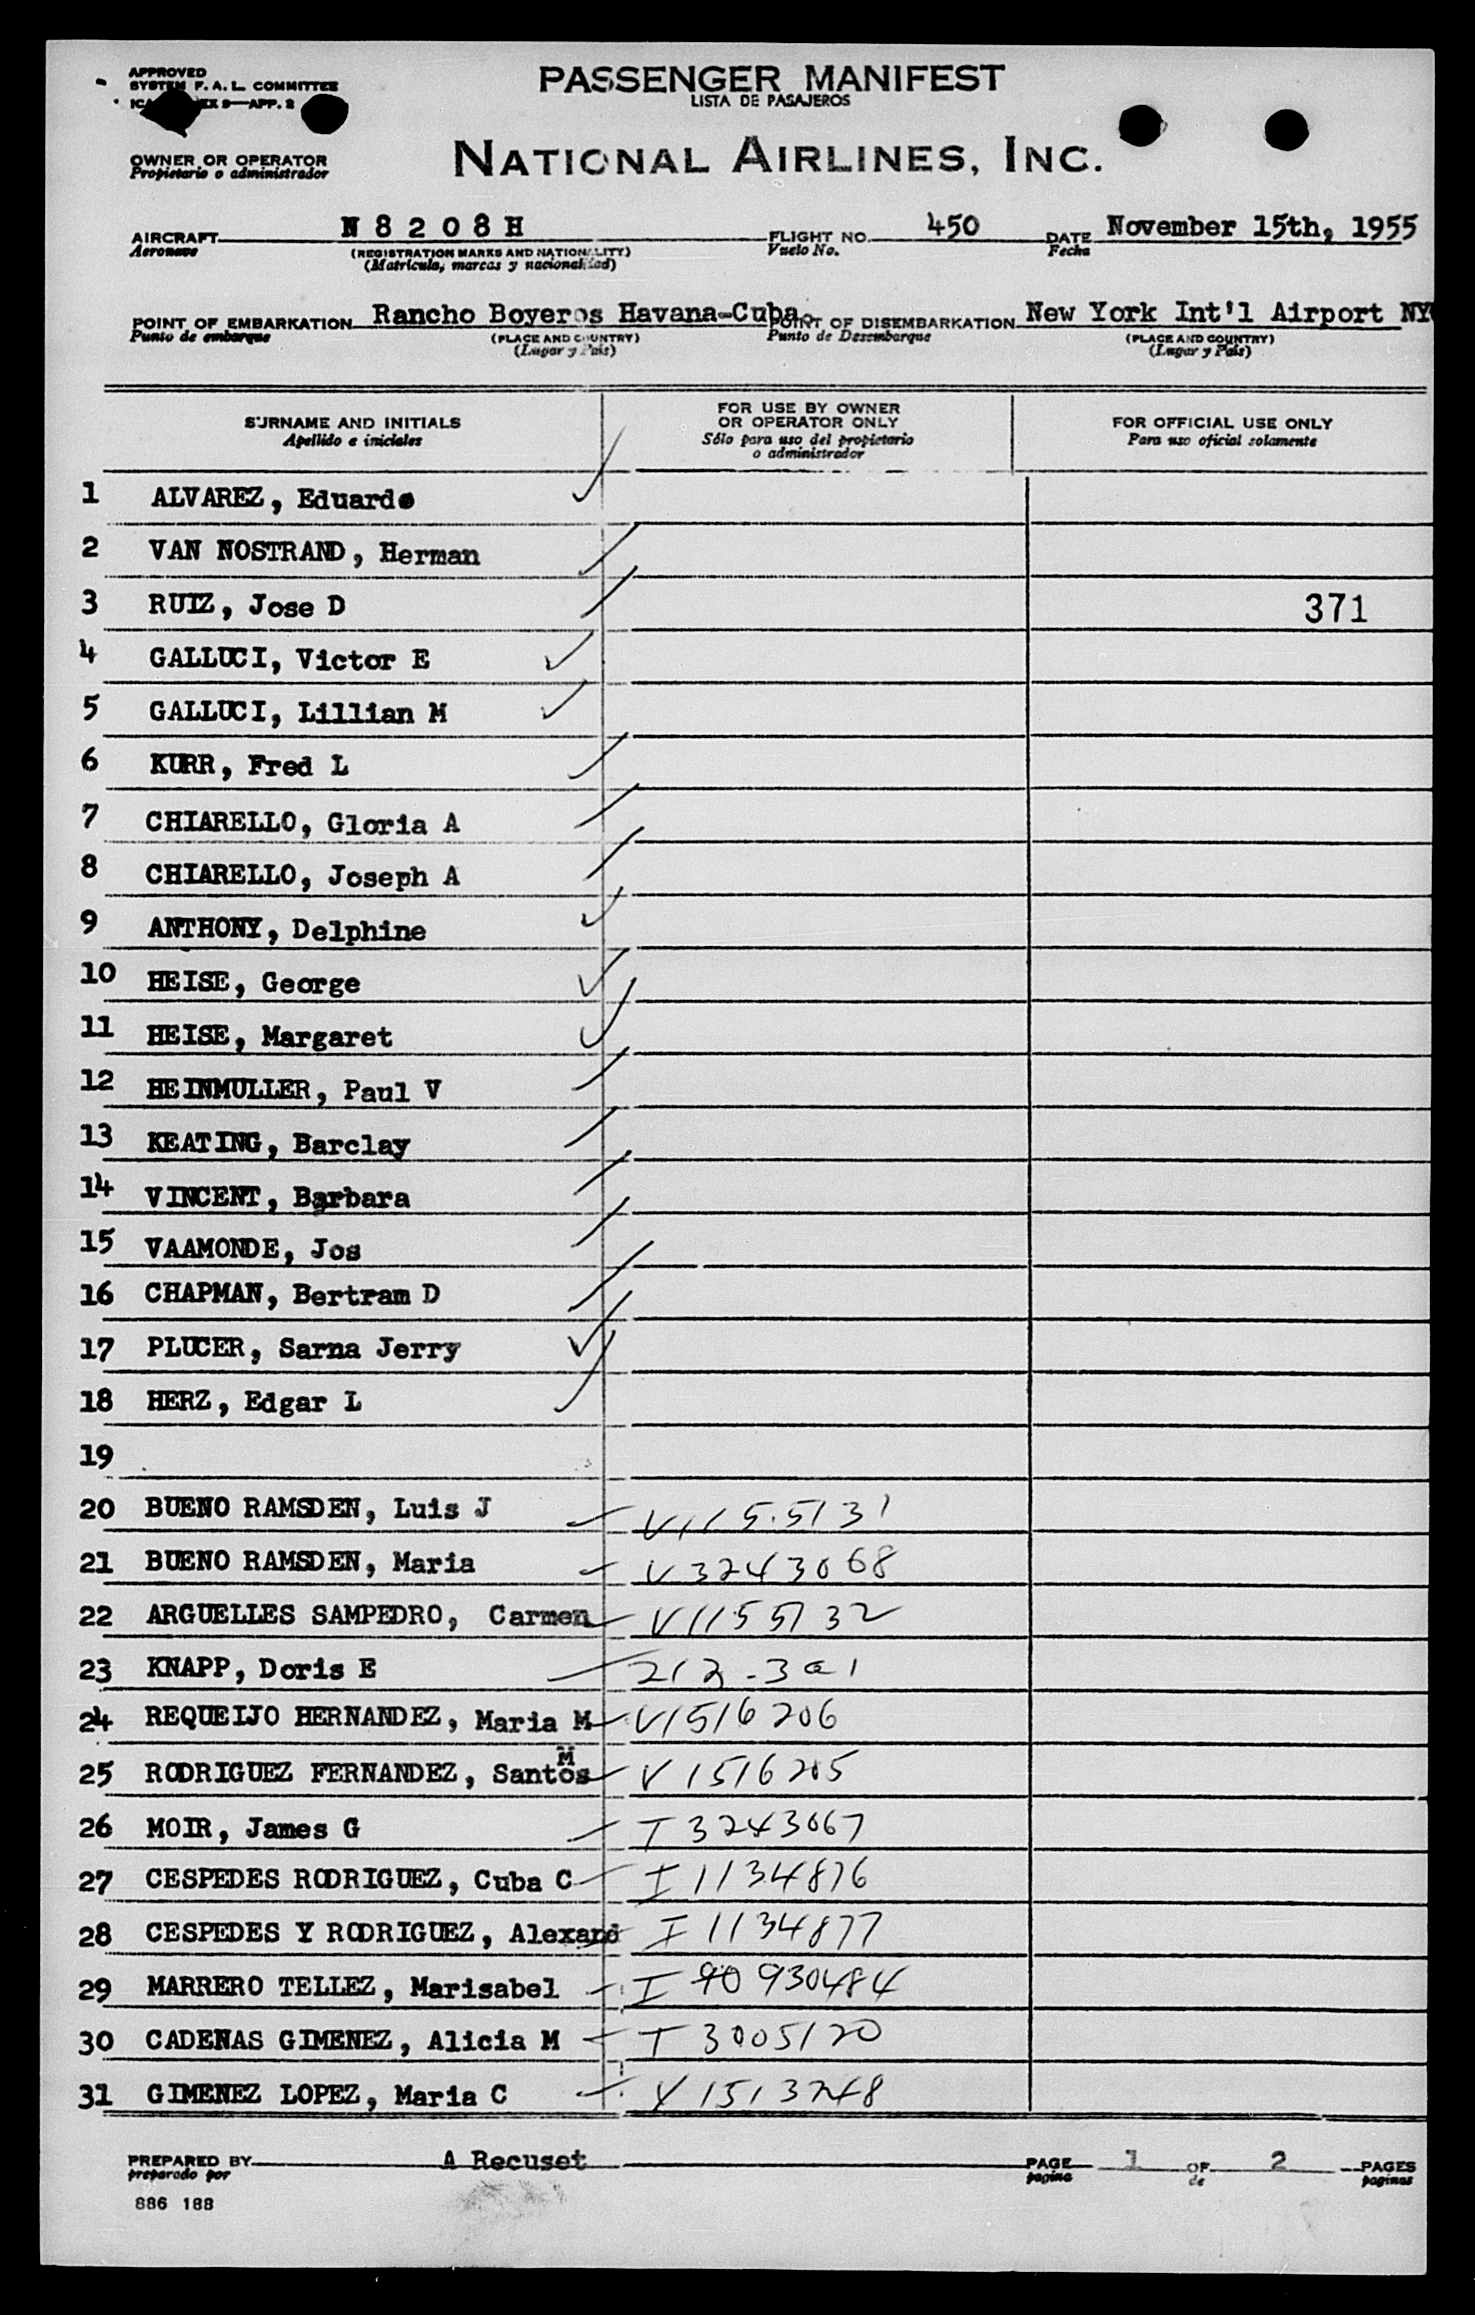 APPROVED
SYSTEM F. A. L. COMMITTEE
9—APP. 2
PASSENGER MANIFEST
LISTA DE PASAJEROS
OWNER OR OPERATOR
Propietario o administrador
NATIONAL AIRLINES, INC.
AIRCRAFT N 8 2 0 8 H FLIGHT NO. 450 DATE November 15th, 1955
Aeronave (REGISTRATION MARKS AND NATIONALITY) Vuelo No. Fecha
(Matricula, marcas y nacionalidad)
POINT OF EMBARKATION Rancho Boyeros Havana-Cuba. POINT OF DISEMBARKATION New York Int'l Airport NY
Punto de embarque (PLACE AND COUNTRY) Punto de Desembarque (PLACE AND COUNTRY)
(Lugar y Pais) (Lugar y Pais)
SURNAME AND INITIALS
Apellido e iniciales
FOR USE BY OWNER
OR OPERATOR ONLY
Sólo para uso del propietario
o administrador
FOR OFFICIAL USE ONLY
Para uso oficial solamente
1 ALVAREZ, Eduardo
2 VAN NOSTRAND, Herman
3 RUIZ, Jose D 371
4 GALLUCI, Victor E
5 GALLUCI, Lillian M
6 KURR, Fred L
7 CHIARELLO, Gloria A
8 CHIARELLO, Joseph A
9 ANTHONY, Delphine
10 HEISE, George
11 HEISE, Margaret
12 HEINMULLER, Paul V
13 KEATING, Barclay
14 VINCENT, Barbara
15 VAAMONDE, Jos
16 CHAPMAN, Bertram D
17 PLUCER, Sarna Jerry
18 HERZ, Edgar L
19
20 BUENO RAMSDEN, Luis J V1155131
21 BUENO RAMSDEN, Maria V3243068
22 ARGUELLES SAMPEDRO, Carmen V1155132
23 KNAPP, Doris E 212-301
24 REQUEIJO HERNANDEZ, Maria M V1516206
25 RODRIGUEZ FERNANDEZ, Santos M V1516205
26 MOIR, James G T 3243067
27 CESPEDES RODRIGUEZ, Cuba C I 1134876
28 CESPEDES Y RODRIGUEZ, Alexand I 1134877
29 MARRERO TELLEZ, Marisabel I 90 930484
30 CADENAS GIMENEZ, Alicia M T 3005120
31 GIMENEZ LOPEZ, Maria C V 1513248
PREPARED BY A Recuset PAGE 1 OF 2 PAGES
preparado por pagina de paginas
886 188